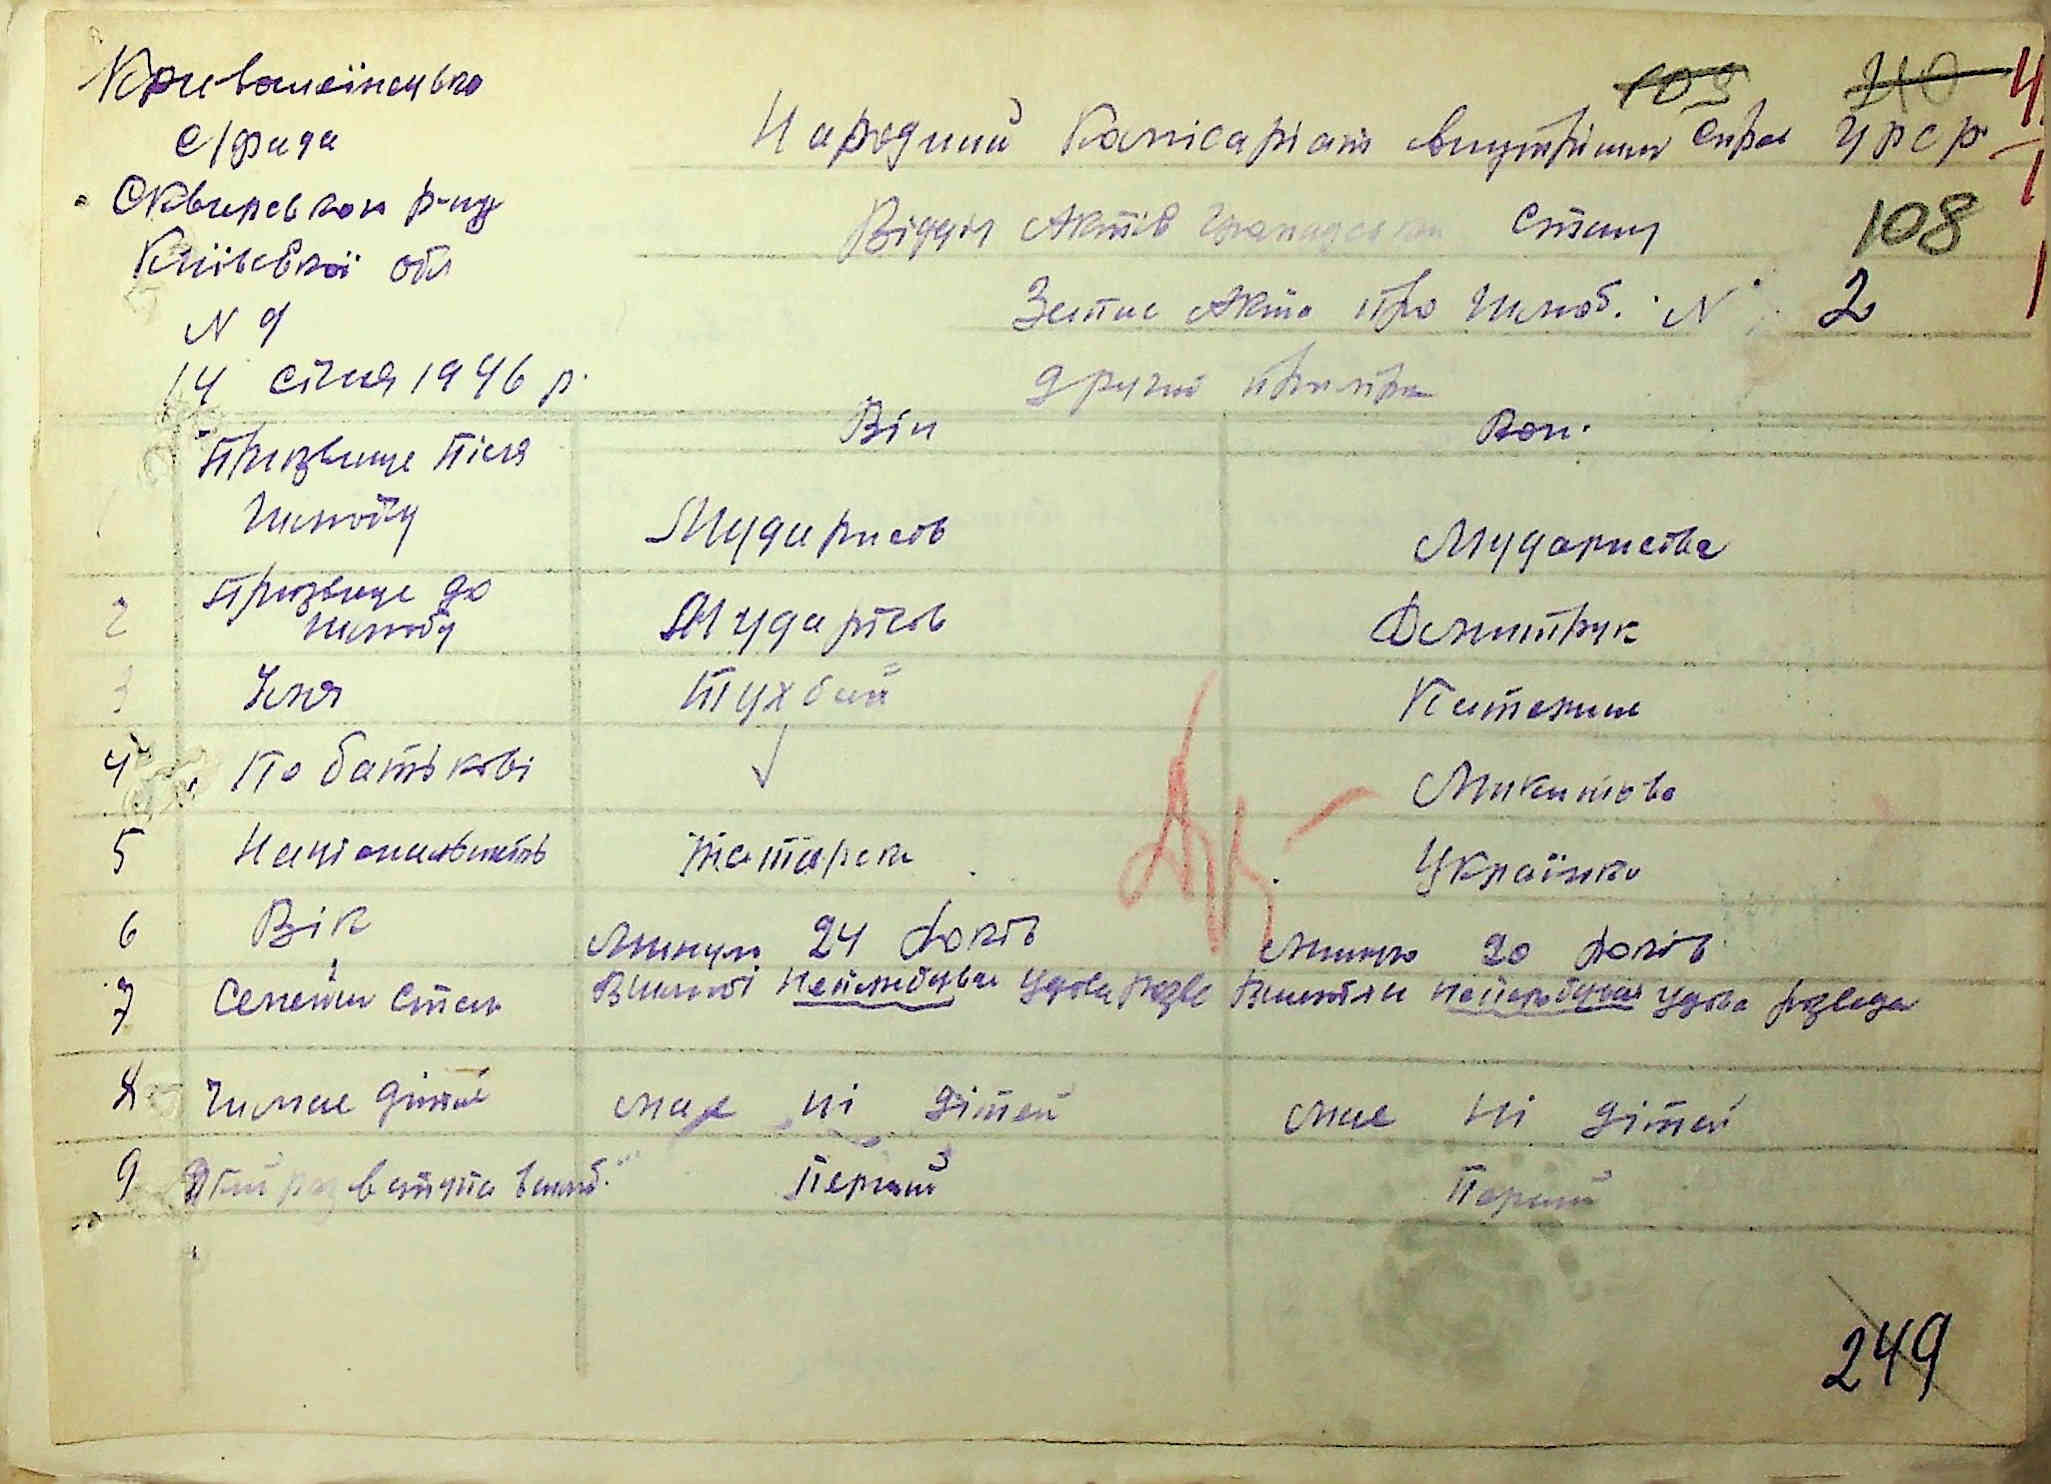 Кривошеїнсько
с/рада
Сквирського р-ну
Київської обл
N 9
14 січня 1946 р.
103 210
Народний Комісаріат внутрішних справ УРСР
Відділ Актів Громадського Стану
108
Запис Акта про шлюб. N 2
другий примірн
Він Вон.
Прізвище після
шлюбу Мударисов Мударисова
2 Прізвище до
шлюбу Мударісов Демитрук
3 Імя Тухбай Катерина
4 По батькові Микитова
5 Національність татарин Українка
6 Вік Минуло 24 років Минуло 20 років
7 Семейни стан В шлюбі не перебував удова розве В шлюбі не перебувала удова розведена
8 Чи має дітей має ні дітей має ні дітей
9 Який раз вступа в шлюб. Перший Перший
249